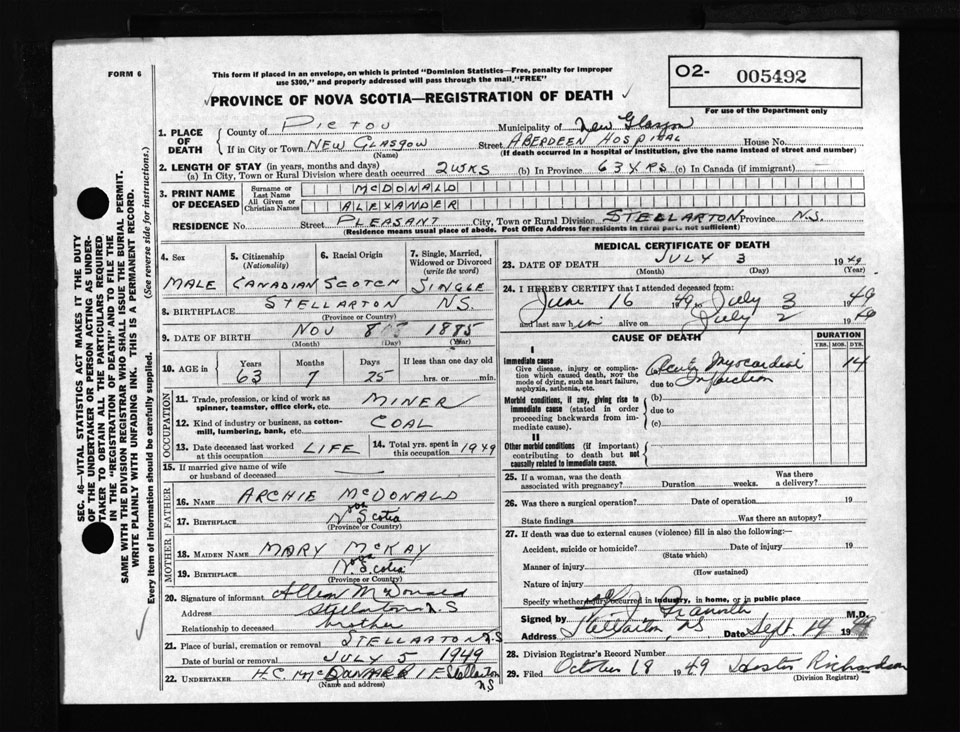 FORM 6
This form if placed in an envelope, on which is printed "Dominion Statistics—Free, penalty for improper
use $300," and properly addressed will pass through the mail "FREE"
O2- 005492
For use of the Department only
PROVINCE OF NOVA SCOTIA—REGISTRATION OF DEATH
1. PLACE OF DEATH
County of PICTOU Municipality of New Glasgow
If in City or Town NEW GLASGOW Street ABERDEEN HOSPITAL House No.
(Name) (If death occurred in a hospital or institution, give the name instead of street and number)
2. LENGTH OF STAY (in years, months and days)
(a) In City, Town or Rural Division where death occurred 2 WKS (b) In Province 63 YRS (c) In Canada (if immigrant) —
3. PRINT NAME OF DECEASED
Surname or Last Name MCDONALD
All Given or Christian Names ALEXANDER
RESIDENCE No. Street PLEASANT City, Town or Rural Division STELLARTON Province N.S.
(Residence means usual place of abode. Post Office Address for residents in rural part, not sufficient)
4. Sex MALE
5. Citizenship (Nationality) CANADIAN
6. Racial Origin SCOTCH
7. Single, Married, Widowed or Divorced (write the word) SINGLE
8. BIRTHPLACE STELLARTON N.S.
(Province or Country)
9. DATE OF BIRTH NOV 8 1885
(Month) (Day) (Year)
10. AGE in Years Months Days If less than one day old
63 7 25 hrs. or min.
11. Trade, profession, or kind of work as spinner, teamster, office clerk, etc. MINER
12. Kind of industry or business, as cotton-mill, lumbering, bank, etc. COAL
13. Date deceased last worked at this occupation LIFE
14. Total yrs. spent in this occupation 1949
15. If married give name of wife or husband of deceased —
FATHER
16. NAME ARCHIE McDONALD
17. BIRTHPLACE Nova Scotia
(Province or Country)
MOTHER
18. MAIDEN NAME MARY McKAY
19. BIRTHPLACE Nova Scotia
(Province or Country)
20. Signature of informant Allan McDonald
Address Stellarton N.S
Relationship to deceased brother
21. Place of burial, cremation or removal STELLARTON N.S
Date of burial or removal JULY 5 1949
22. UNDERTAKER Stellarton N.S
(Name and address)
MEDICAL CERTIFICATE OF DEATH
23. DATE OF DEATH JULY 3 1949
(Month) (Day) (Year)
24. I HEREBY CERTIFY that I attended deceased from:
June 16 1949 to July 3 1949
and last saw him alive on July 2 1949
CAUSE OF DEATH
DURATION
YRS. MOS. DYS.
I
Immediate cause
Give disease, injury or complication which caused death, not the mode of dying, such as heart failure, asphyxia, asthenia, etc.
Acute Myocardial 14
due to Infarction
Morbid conditions, if any, giving rise to immediate cause (stated in order proceeding backwards from immediate cause).
(b)
due to
(c)
II
Other morbid conditions (if important) contributing to death but not causally related to immediate cause.
25. If a woman, was the death associated with pregnancy? Duration weeks. Was there a delivery?
26. Was there a surgical operation? Date of operation 19
State findings Was there an autopsy?
27. If death was due to external causes (violence) fill in also the following:—
Accident, suicide or homicide? Date of injury 19
(State which)
Manner of injury
(How sustained)
Nature of injury
Specify whether injury occurred in industry, in home, or in public place
Signed by M.D.
Address Stellarton, NS Date Sept. 19 1949
28. Division Registrar's Record Number
29. Filed October 18 1949 Richardson
(Division Registrar)
SEC. 46—VITAL STATISTICS ACT MAKES IT THE DUTY
OF THE UNDERTAKER OR PERSON ACTING AS UNDER-
TAKER TO OBTAIN ALL THE PARTICULARS REQUIRED
IN THE "REGISTRATION OF DEATH" AND TO FILE THE
SAME WITH THE DIVISION REGISTRAR WHO SHALL ISSUE THE BURIAL PERMIT.
WRITE PLAINLY WITH UNFADING INK. THIS IS A PERMANENT RECORD.
Every item of information should be carefully supplied. (See reverse side for instructions.)